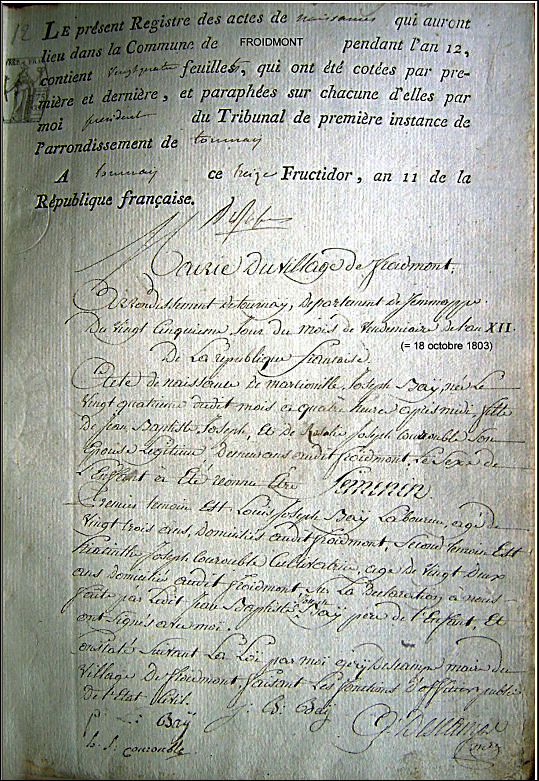 12
LE présent Registre des actes de naissances qui auront
lieu dans la Commune de FROIDMONT pendant l'an 12,
contient vingt quatre feuillets, qui ont été cotées par pre-
mière et dernière, et paraphées sur chacune d'elles par
moi president du Tribunal de première instance de
l'arrondissement de tournay
A tournay ce treize Fructidor, an 11 de la
République française.
Mairie Du village de froidmont.
Arrondissement de tournay, Departement de Jemmappe.
Du vingt Cinquieme Jour du mois de Vendemiaire de l'an XII.
(= 18 octobre 1803)
De La republique francaise.
Acte de naissance de Joseph Baÿ, née Le
Vingt quatrieme dudit mois a quatre heure apres midi, fille
de Jean Baptiste Joseph, Et de Rosalie Joseph Courouble Son
Epouse Legitime Demeurans audit froidmont, Le Sexe de
L'Enfant a Eté reconnu Etre Feminin.
Premier temoin Est Louis Joseph Baÿ Laboureur, agé de
Vingt trois ans, Domicilié audit froidmont, Second temoin Est
Joseph Courouble Cultivatrice, agé de Vingt Deux
ans Domicilié audit froidmont, Sur La Declaration a nous
faite par Ledit Jean Baptiste Joseph Baÿ pere de l'Enfant, Et
ont Signés avec moi.
Constaté Suivant La Loi par moi maire du
Village De froidmont faisant Les fonctions d'officier public
de l'Etat Civil.
Baÿ J. B. Baÿ
Courouble